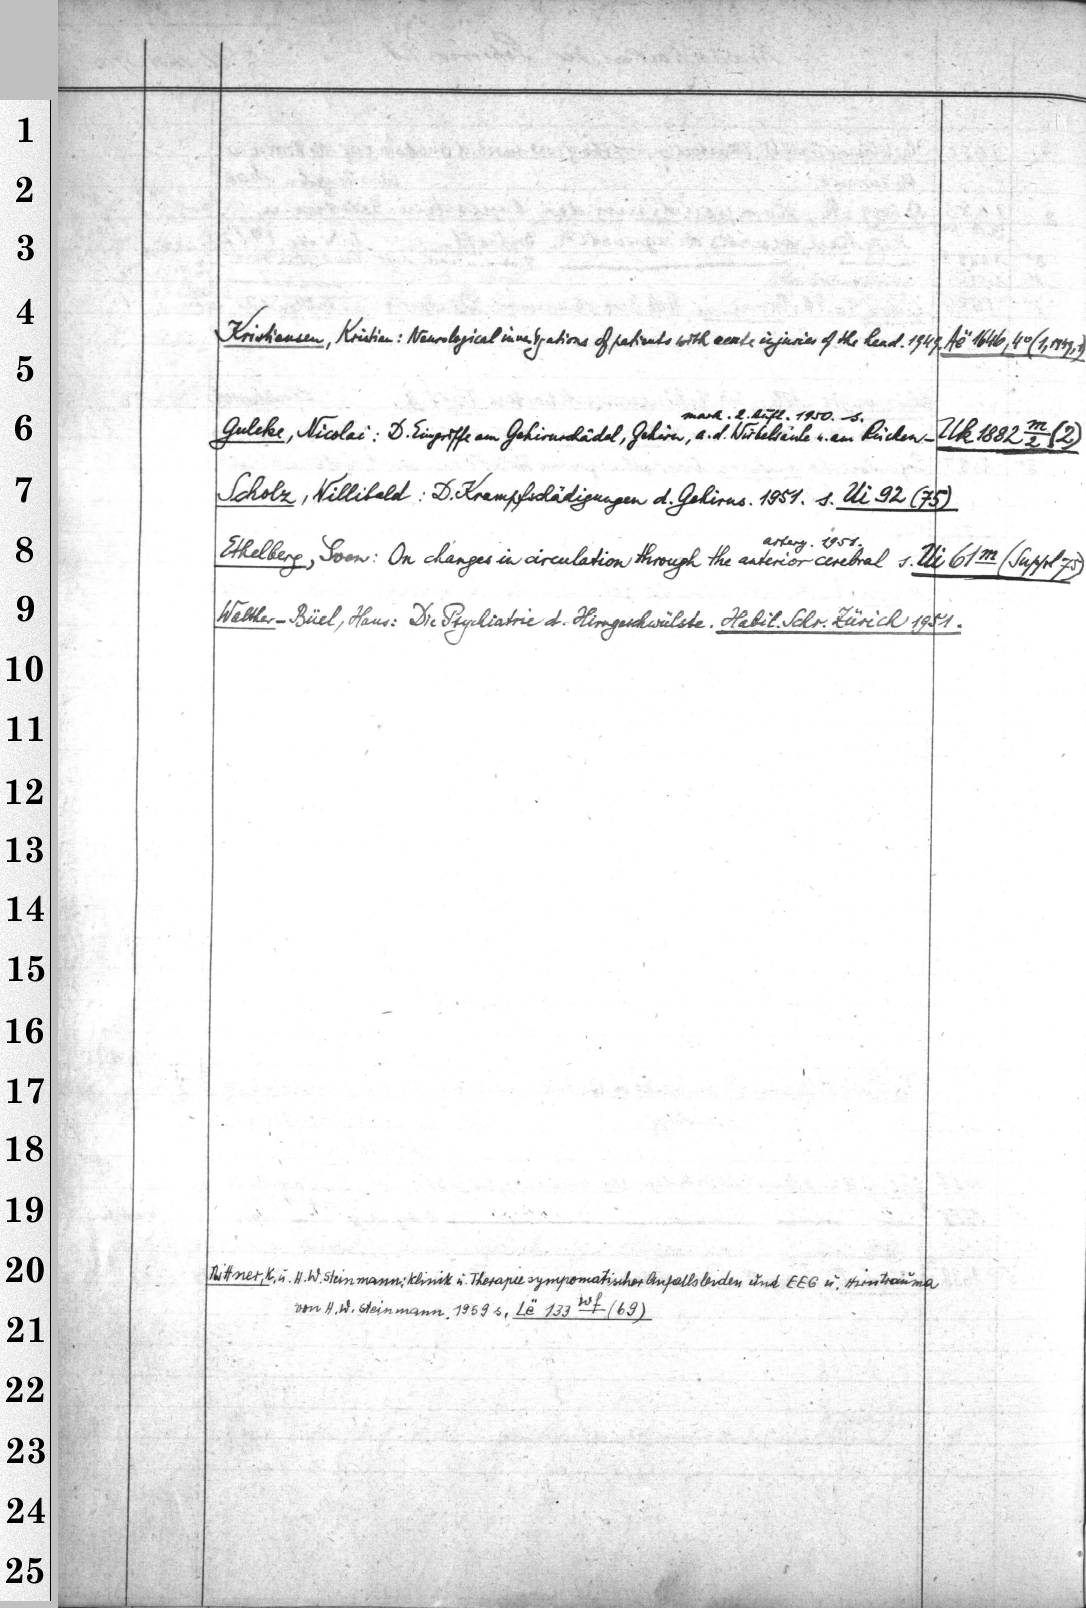 1
2
3
4
Kristiansen, Kristian: Neurological investigations of patients with acute injuries of the head. 1949. Aë 1646, 4° (1, 1949, 1)
5
mark. 2. Aufl. 1950. s.
6
Guleke, Nicolai: D. Eingriffe am Gehirnschädel, Gehirn, a. d. Wirbelsäule u. am Rücken- Uk 1882 m/2 (2)
7
Scholz, Willibald: D. Krampfschädigungen d. Gehirns. 1951. s. Ui 92 (75)
artery. 1951.
8
Ethelberg, Sven: On changes in circulation through the anterior cerebral s. Ui 61 m (Suppl 75)
9
Walther-Büel, Hans: Die Psychiatrie d. Hirngeschwülste. Habil. Schr. Zürich 1951.
10
11
12
13
14
15
16
17
18
19
20
K. u. H. W. Steinmann: Klinik u. Therapie sympomatischer Anfallsleiden und EEG u. Hirntrauma
von H. W. Steinmann. 1959 s. Lë 133 wf (69)
21
22
23
24
25